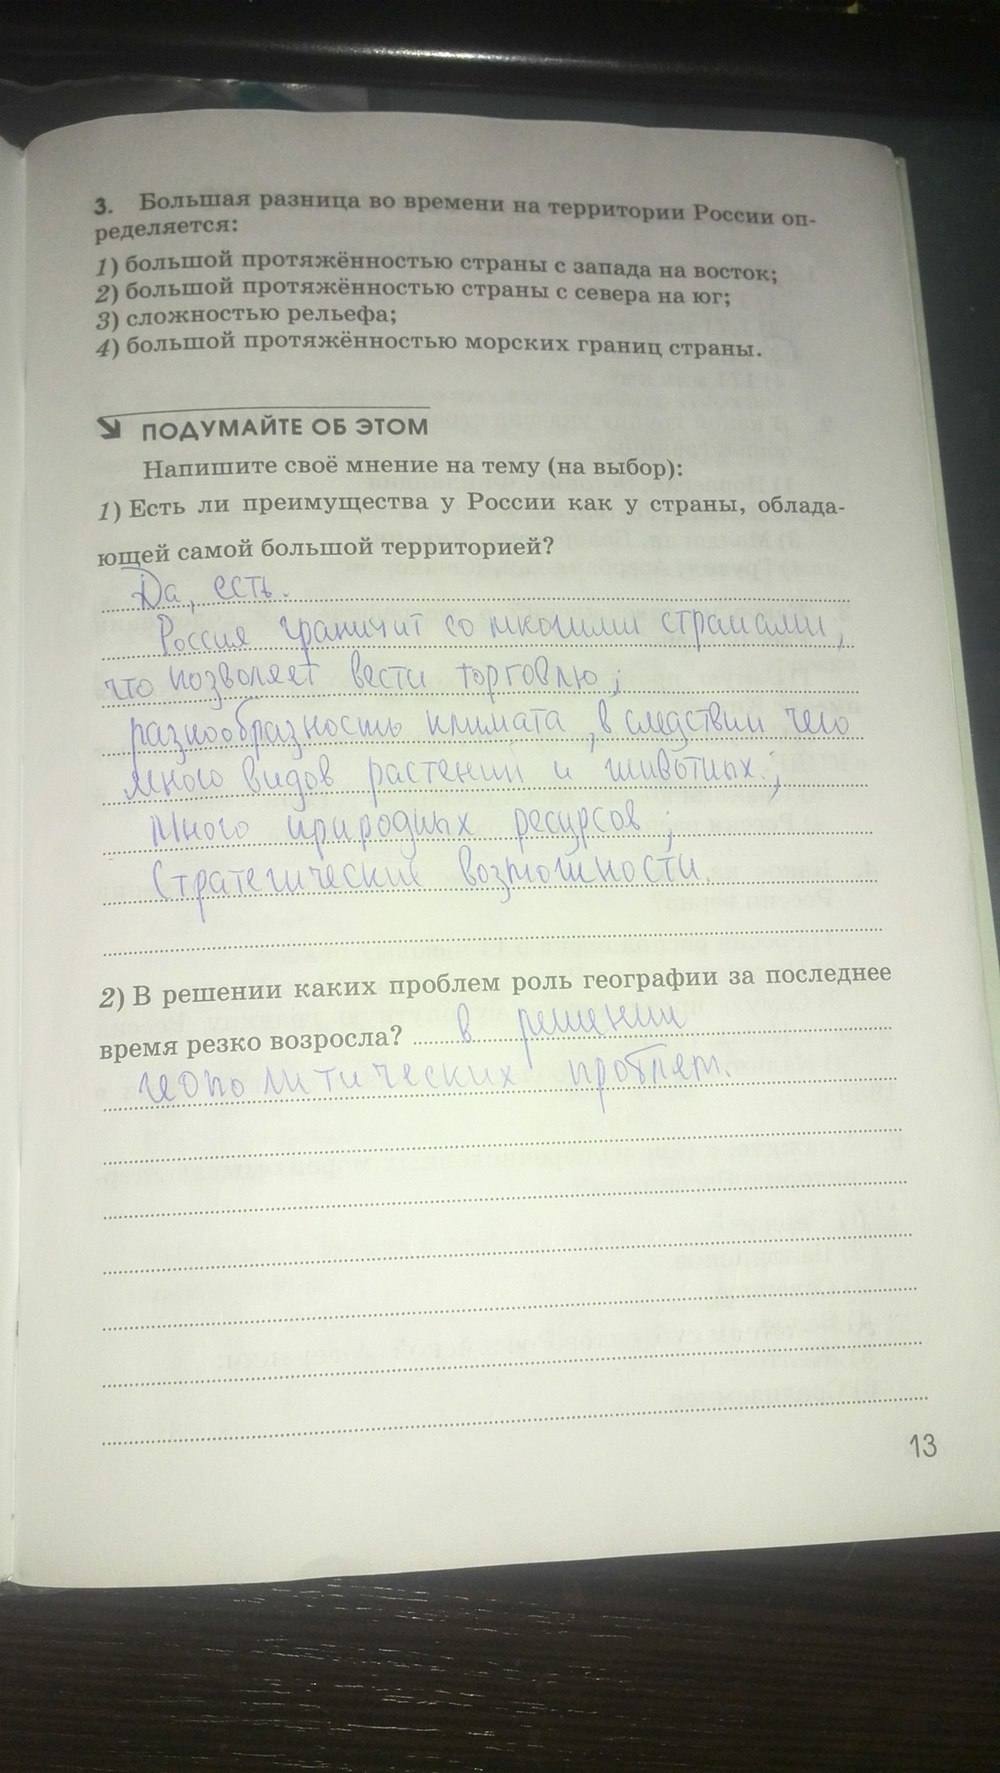 3. Большая разница во времени на территории России оп-
ределяется:
1) большой протяжённостью страны с запада на восток;
2) большой протяжённостью страны с севера на юг;
3) сложностью рельефа;
4) большой протяжённостью морских границ страны.
ПОДУМАЙТЕ ОБ ЭТОМ
Напишите своё мнение на тему (на выбор):
1) Есть ли преимущества у России как у страны, облада-
ющей самой большой территорией?
Да, есть.
Россия граничит со многими странами,
что позволяет вести торговлю;
разнообразность климата, в следствии чего
много видов растений и животных.;
Много природных ресурсов;
Стратегические возможности.
2) В решении каких проблем роль географии за последнее
время резко возросла? в решении
геополитических проблем.
13